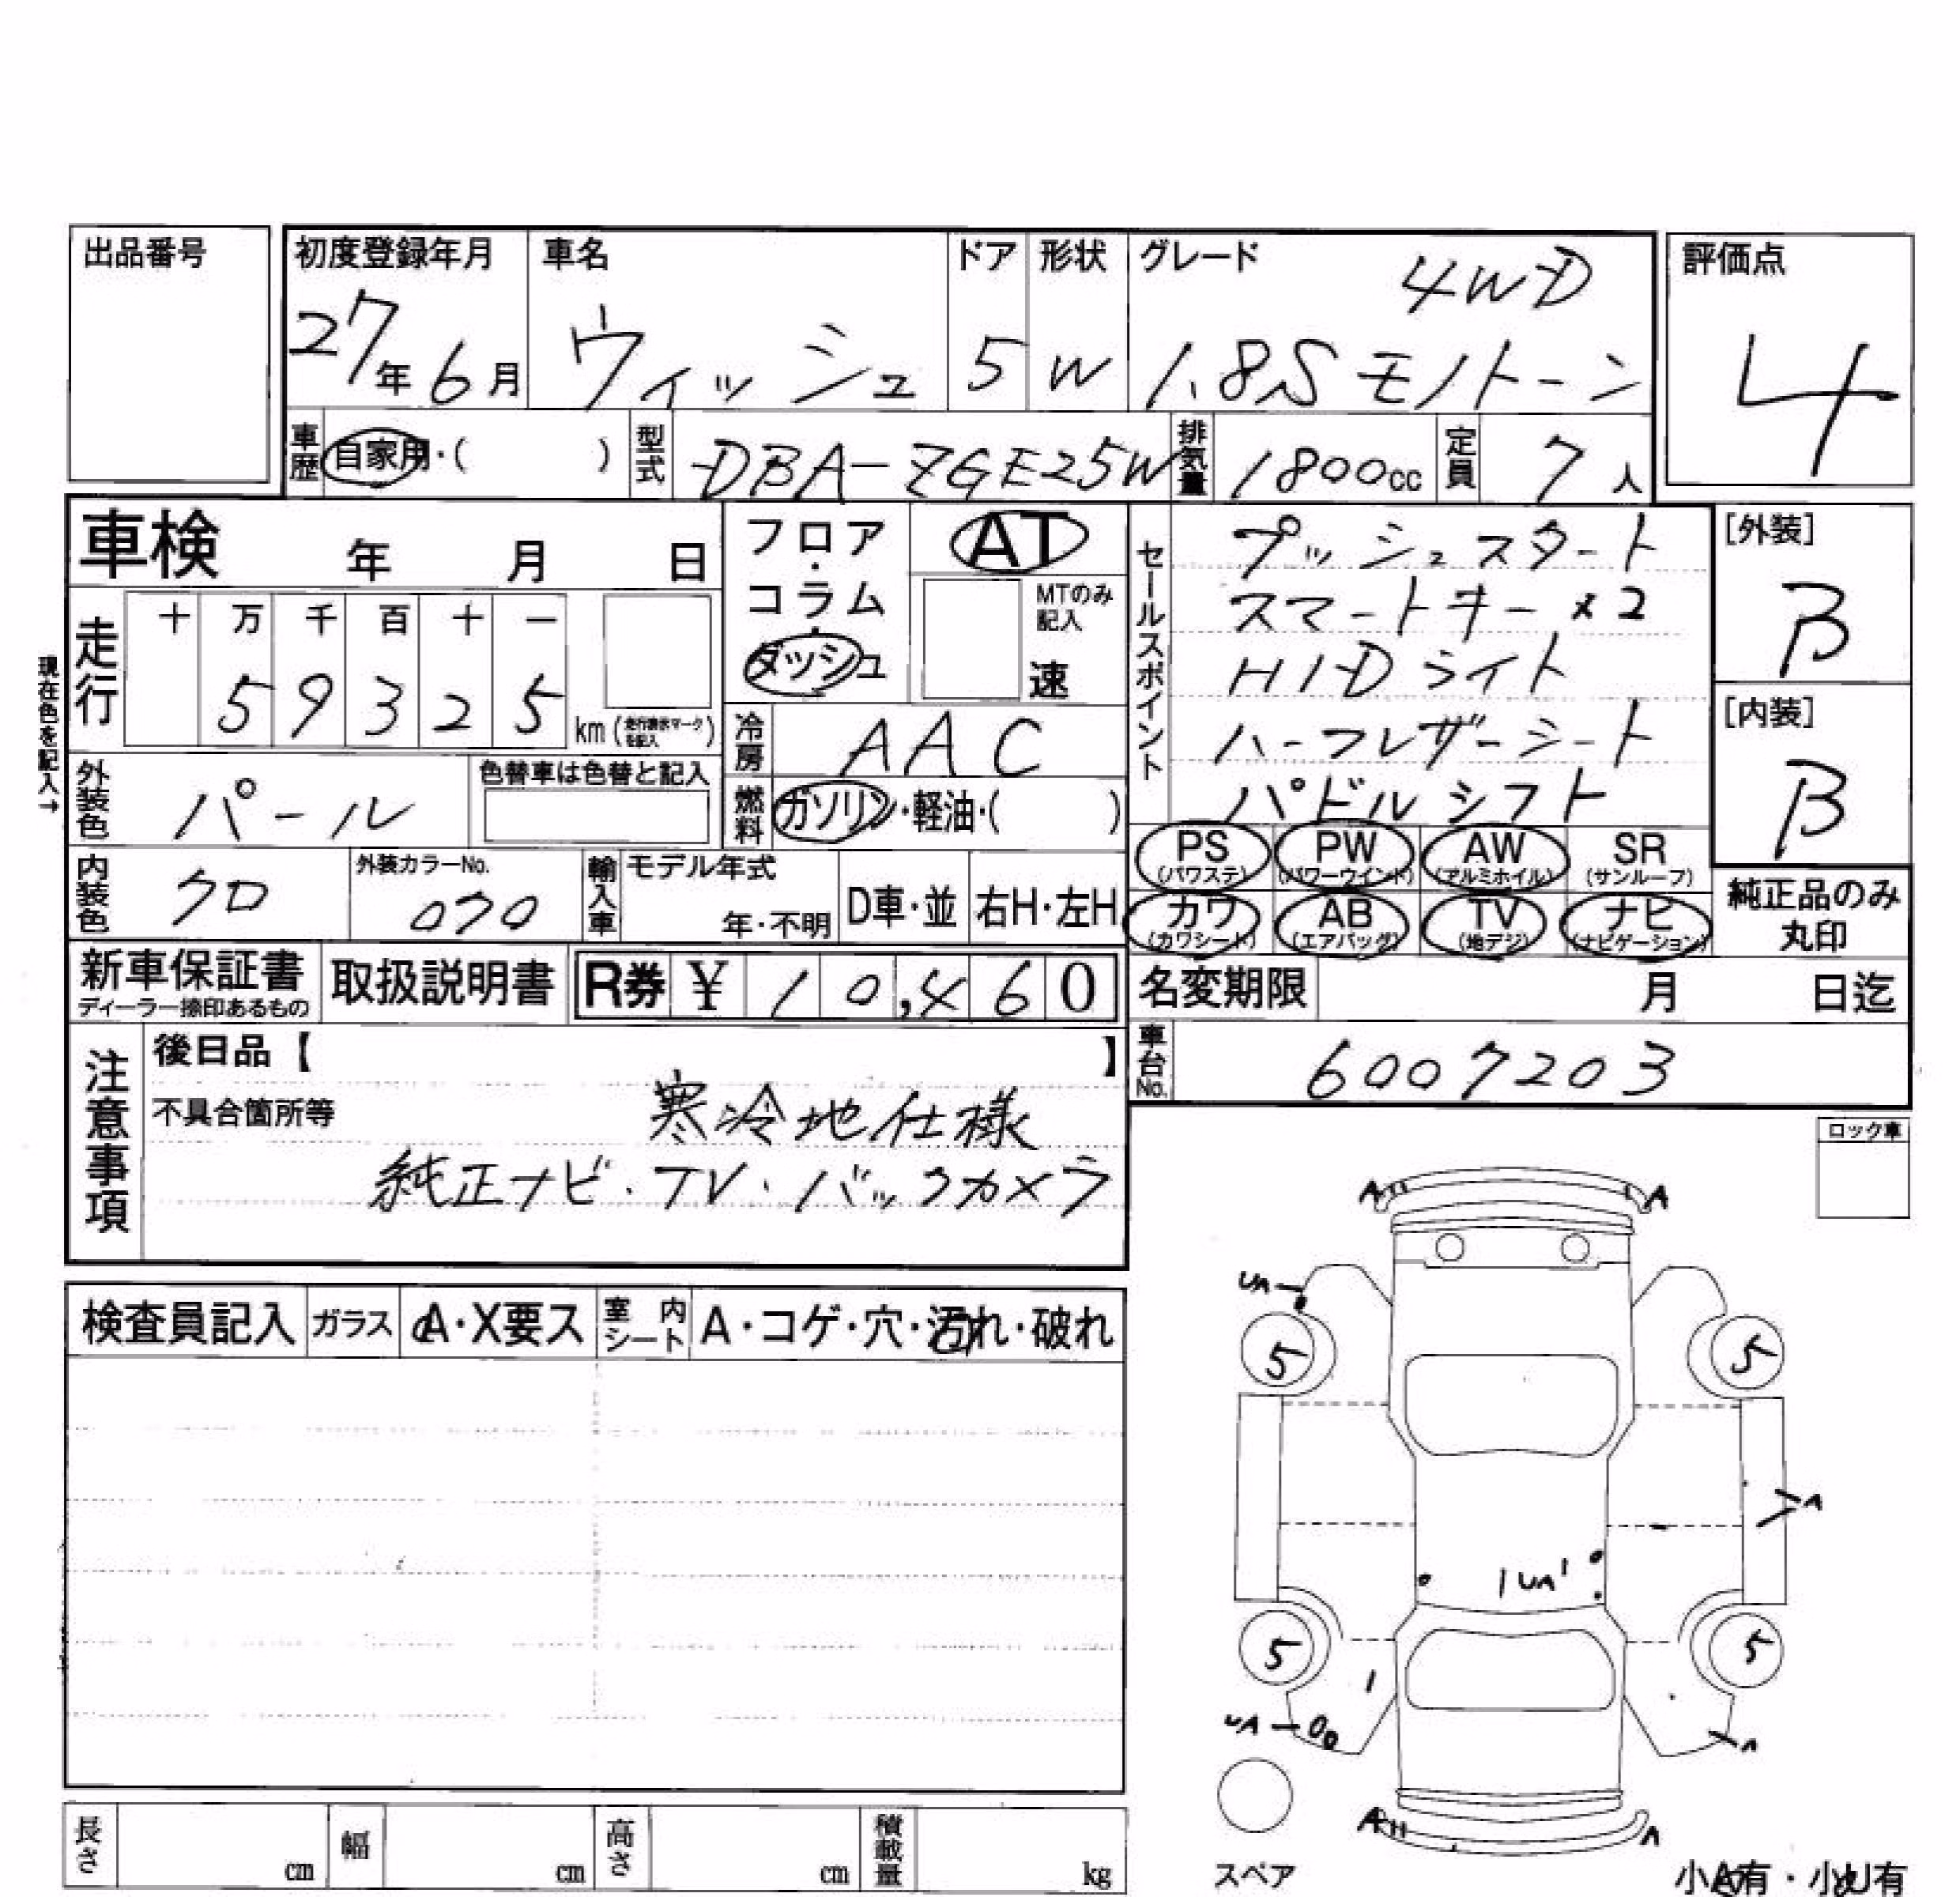 出品番号
初度登録年月 車名 ドア 形状 グレード 4WD 評価点
27年6月 ウィッシュ 5 W 1.8S モノトーン 4
車歴 自家用・( ) 型式 DBA-ZGE25W 排気量 1800cc 定員 7人
車検 年 月 日 フロア・コラム・ダッシュ AT
MTのみ記入 速
セールスポイント
プッシュスタート
スマートキー×2
HIDライト
ハーフレザーシート
パドルシフト
[外装] B
[内装] B
現在色を記入→
走行 十 万 千 百 十 一
5 9 3 2 5 km
冷房 AAC
外装色 パール 色替車は色替と記入 燃料 ガソリン・軽油・( )
PS (パワステ) PW (パワーウインド) AW (アルミホイル) SR (サンルーフ)
カワ (カワシート) AB (エアバッグ) TV (地デジ) ナビ (ナビゲーション)
純正品のみ丸印
内装色 クロ 外装カラーNo. 070 輸入車 モデル年式 年・不明 D車・並 右H・左H
新車保証書 取扱説明書 R券 ¥ 10,460 名変期限 月 日迄
ディーラー捺印あるもの
車台No. 6007203
注意事項 後日品【 】
不具合箇所等 寒冷地仕様
純正ナビ・TV・バックカメラ
ロック車
A A
UA
5 5
検査員記入 ガラス A・X要ス 室内シート A・コゲ・穴・汚れ・破れ
A
UA
5 5
UA A
A A
スペア
長さ cm 幅 cm 高さ cm 積載量 kg
小A有・小U有